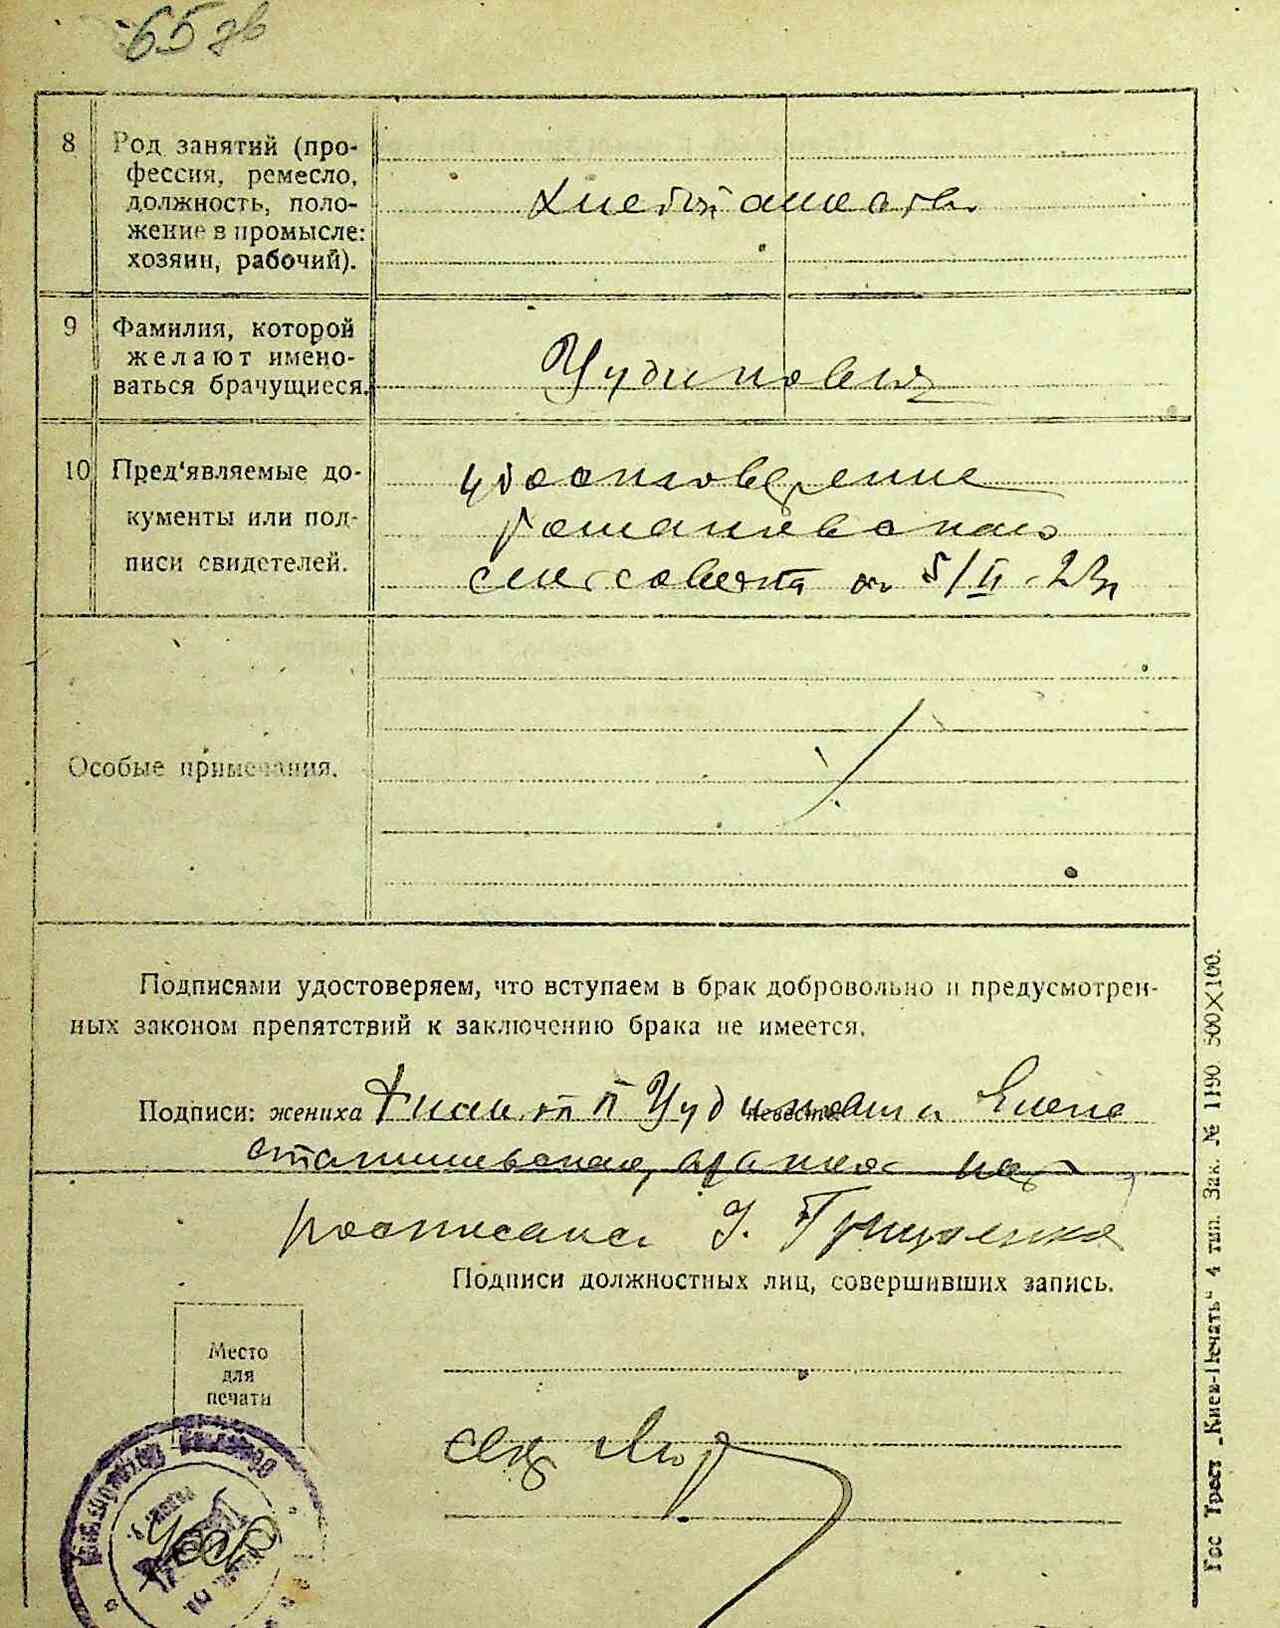 65 зв
8
Род занятий (про-
фессия, ремесло,
должность, поло-
жение в промысле:
хозяин, рабочий).
хлебопашество
9
Фамилия, которой
желают имено-
ваться брачущиеся.
Чудиновы
10
Пред'являемые до-
кументы или под-
писи свидетелей.
удостоверение
сельсовета от 5/II-23г
Особые примечания.
Подписями удостоверяем, что вступаем в брак добровольно и предусмотрен-
ных законом препятствий к заключению брака не имеется.
Подписи: жениха Чудинов и Елена
невесты
росписался Грищенко
Подписи должностных лиц, совершивших запись.
Место
для
печати
Гос Трест „Киев-Печать“ 4 тип. Зак. № 1190. 500×100.